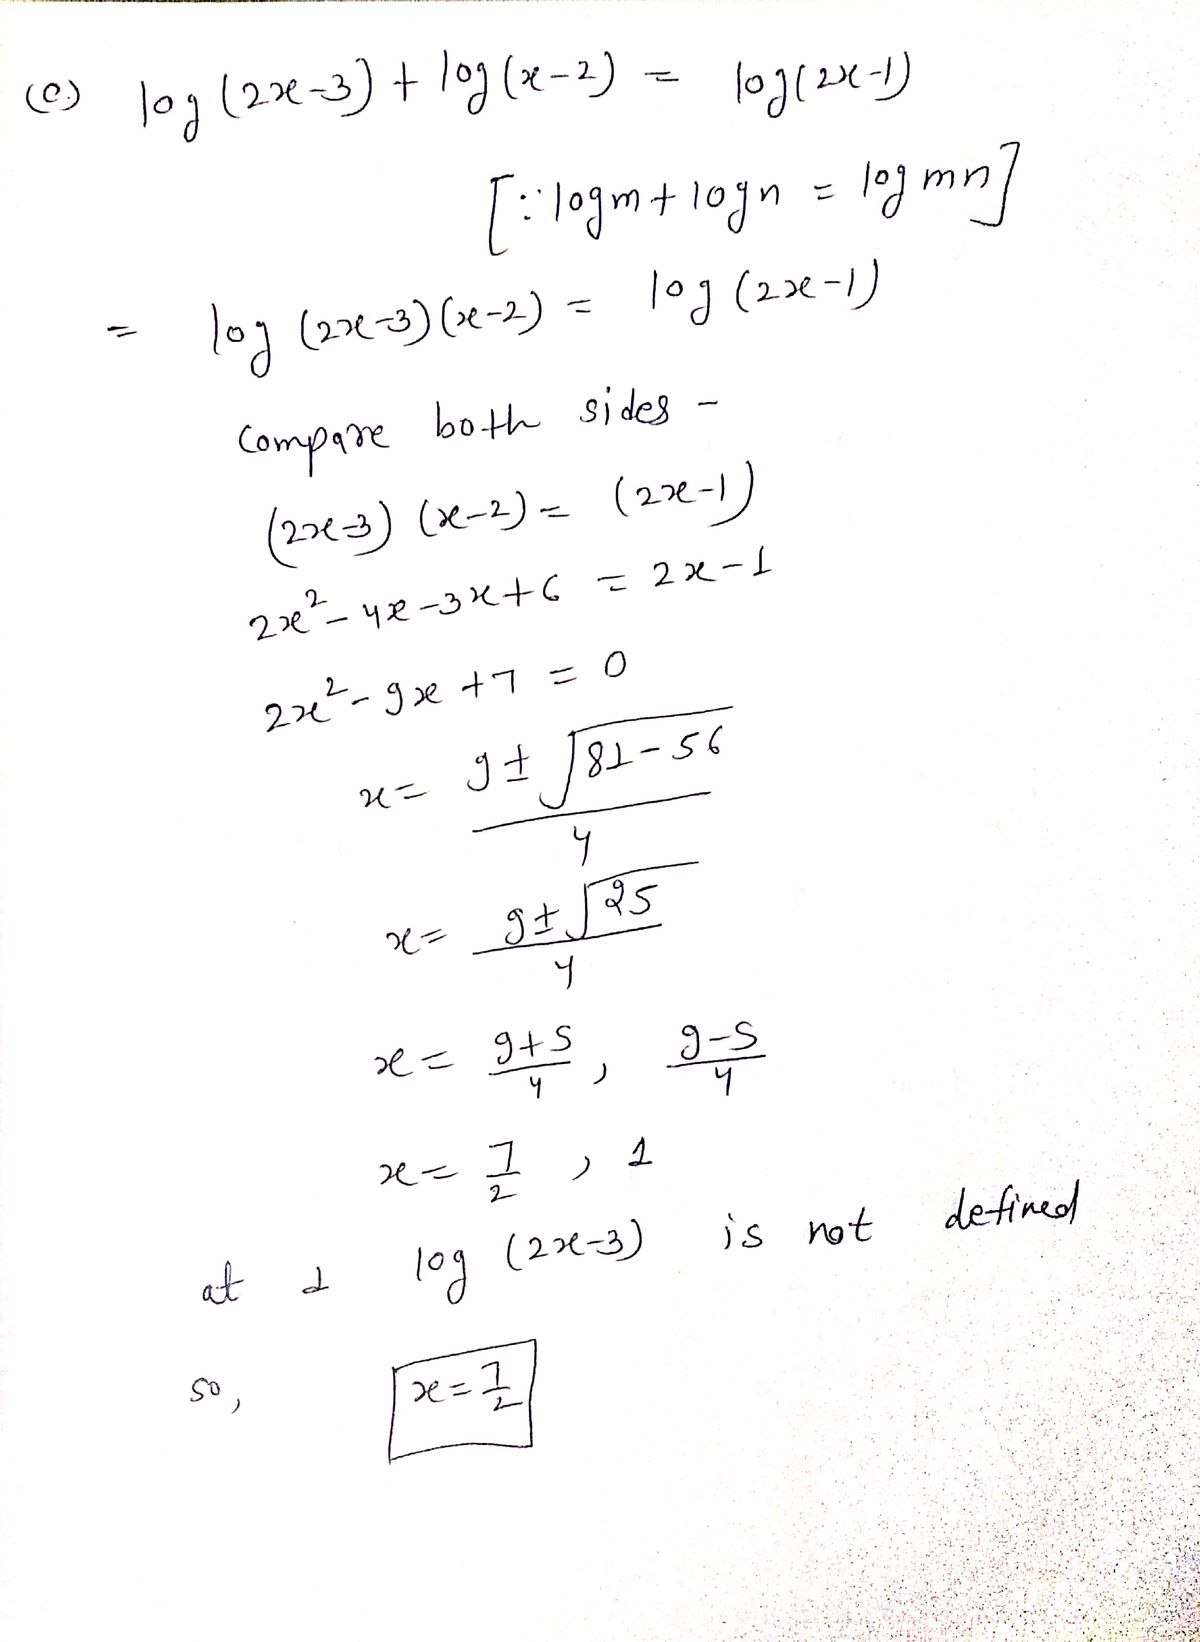 (e.) log (2x-3) + log (x-2) = log(2x-1)
[∵ log m + log n = log mn]
= log (2x-3) (x-2) = log (2x-1)
compare both sides -
(2x-3) (x-2) = (2x-1)
2x² - 4x - 3x + 6 = 2x - 1
2x² - 9x + 7 = 0
x = (9 ± √(81-56))/4
x = (9 ± √25)/4
x = (9+5)/4 , (9-5)/4
x = 7/2 , 1
at 1 log (2x-3) is not defined
so, x = 7/2